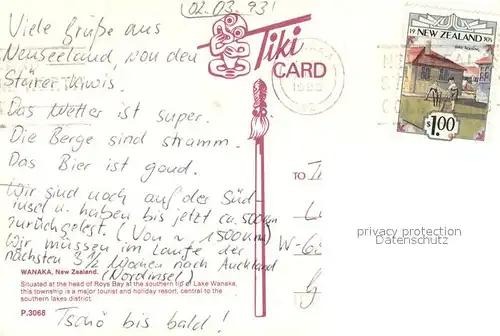 (02.03.93)
Viele Grüße aus
Neuseeland, von den
Stürer Kiwis.
Das Wetter ist super.
Die Berge sind stramm.
Das Bier ist goud.
Wir sind noch auf der Süd-
insel u. haben bis jetzt ca. 500 km
zurückgelegt. (Von ~ 1500 km)
Wir müssen im Laufe der
nächsten 3 1/2 Wochen nach Auckland
(Nordinsel)
Tschö bis bald!
Tiki
CARD
TO
W-65
WANAKA, New Zealand.
Situated at the head of Roys Bay at the southern tip of Lake Wanaka,
this township is a major tourist and holiday resort, central to the
southern lakes district.
P.3068
NEW ZEALAND
19 30s
$1.00
privacy protection
Datenschutz